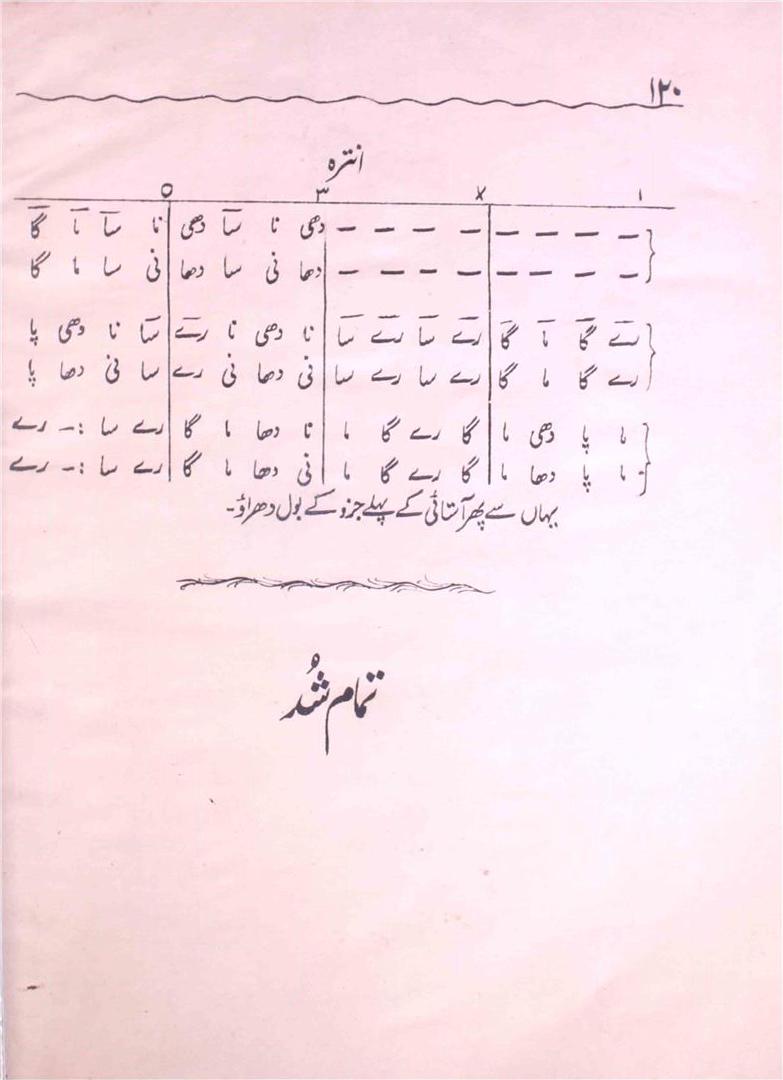 ۱۲۰
انترہ
۱ x ۳ ०
– – – – – – – – دھی نا سا دھی نا سا ما گا
– – – – – – – – دھا نی سا دھا نی سا ما گا
رے گا ما گا رے سا رے سا نا دھی نا رے سا نا دھی پا
رے گا ما گا رے سا رے سا نی دھا نی رے سا نی دھا پا
ما پا دھی ما گا رے گا ما نا دھا ما گا رے سا :- رے
ما پا دھا ما گا رے گا ما نی دھا ما گا رے سا :- رے
یہاں سے پھر آستائی کے پہلے جزو کے بول دھراؤ-
تمام شُد